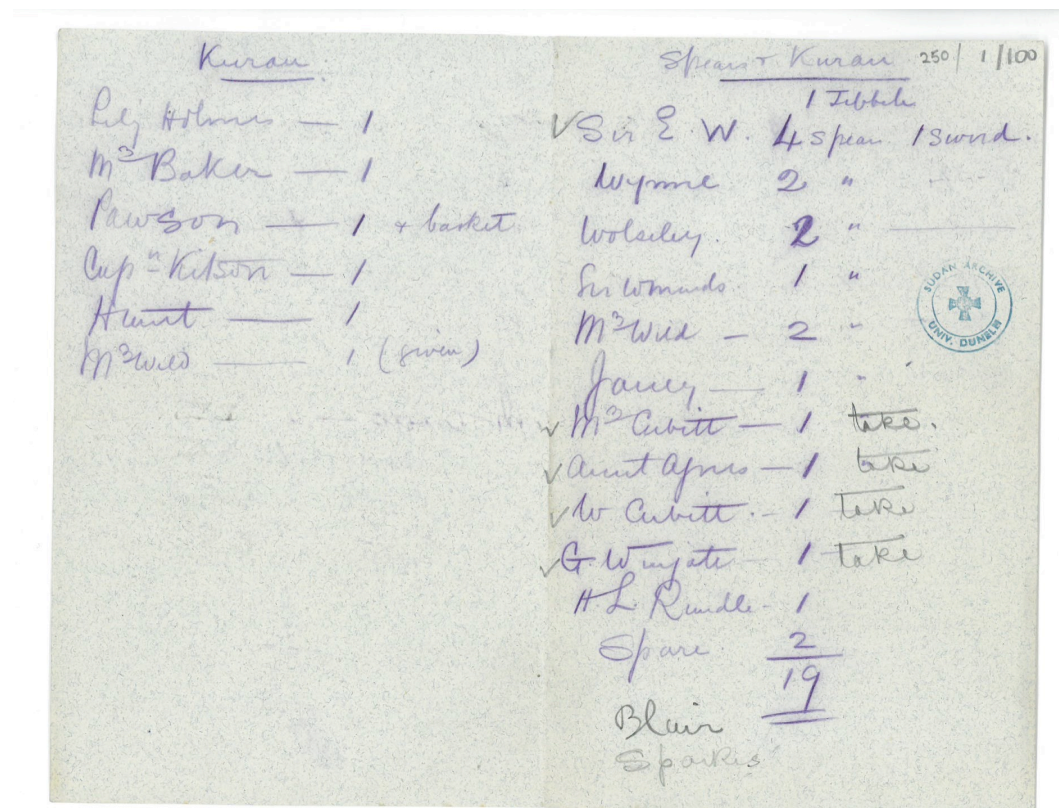 Kuran
Lily Holmes — 1
Mrs Baker — 1
Pawson — 1 + basket
Capn Kitson — 1
Hunt — 1
Mrs Wild — 1 (given)
Spears + Kuran 250/1/100
1 Jibbeh
✓ Sir E. W. 4 spears 1 sword.
Wynne 2 "
Wolseley. 2 " —
1 "
Mrs Wild — 2 "
Janey — 1 "
✓ Mrs Cubitt — 1 take.
✓ Aunt Agnes — 1 take
✓ W Cubitt. - 1 take
✓ G. Wingate — 1 take
H L Rundle - 1
Spare 2
19
Blair
Sparkes
SUDAN ARCHIVE
UNIV. DUNELM